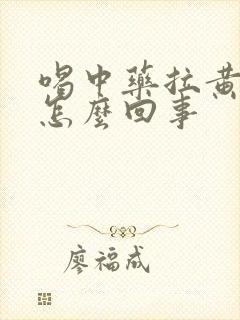 喝中藥拉黃
怎麼回事
廖福成